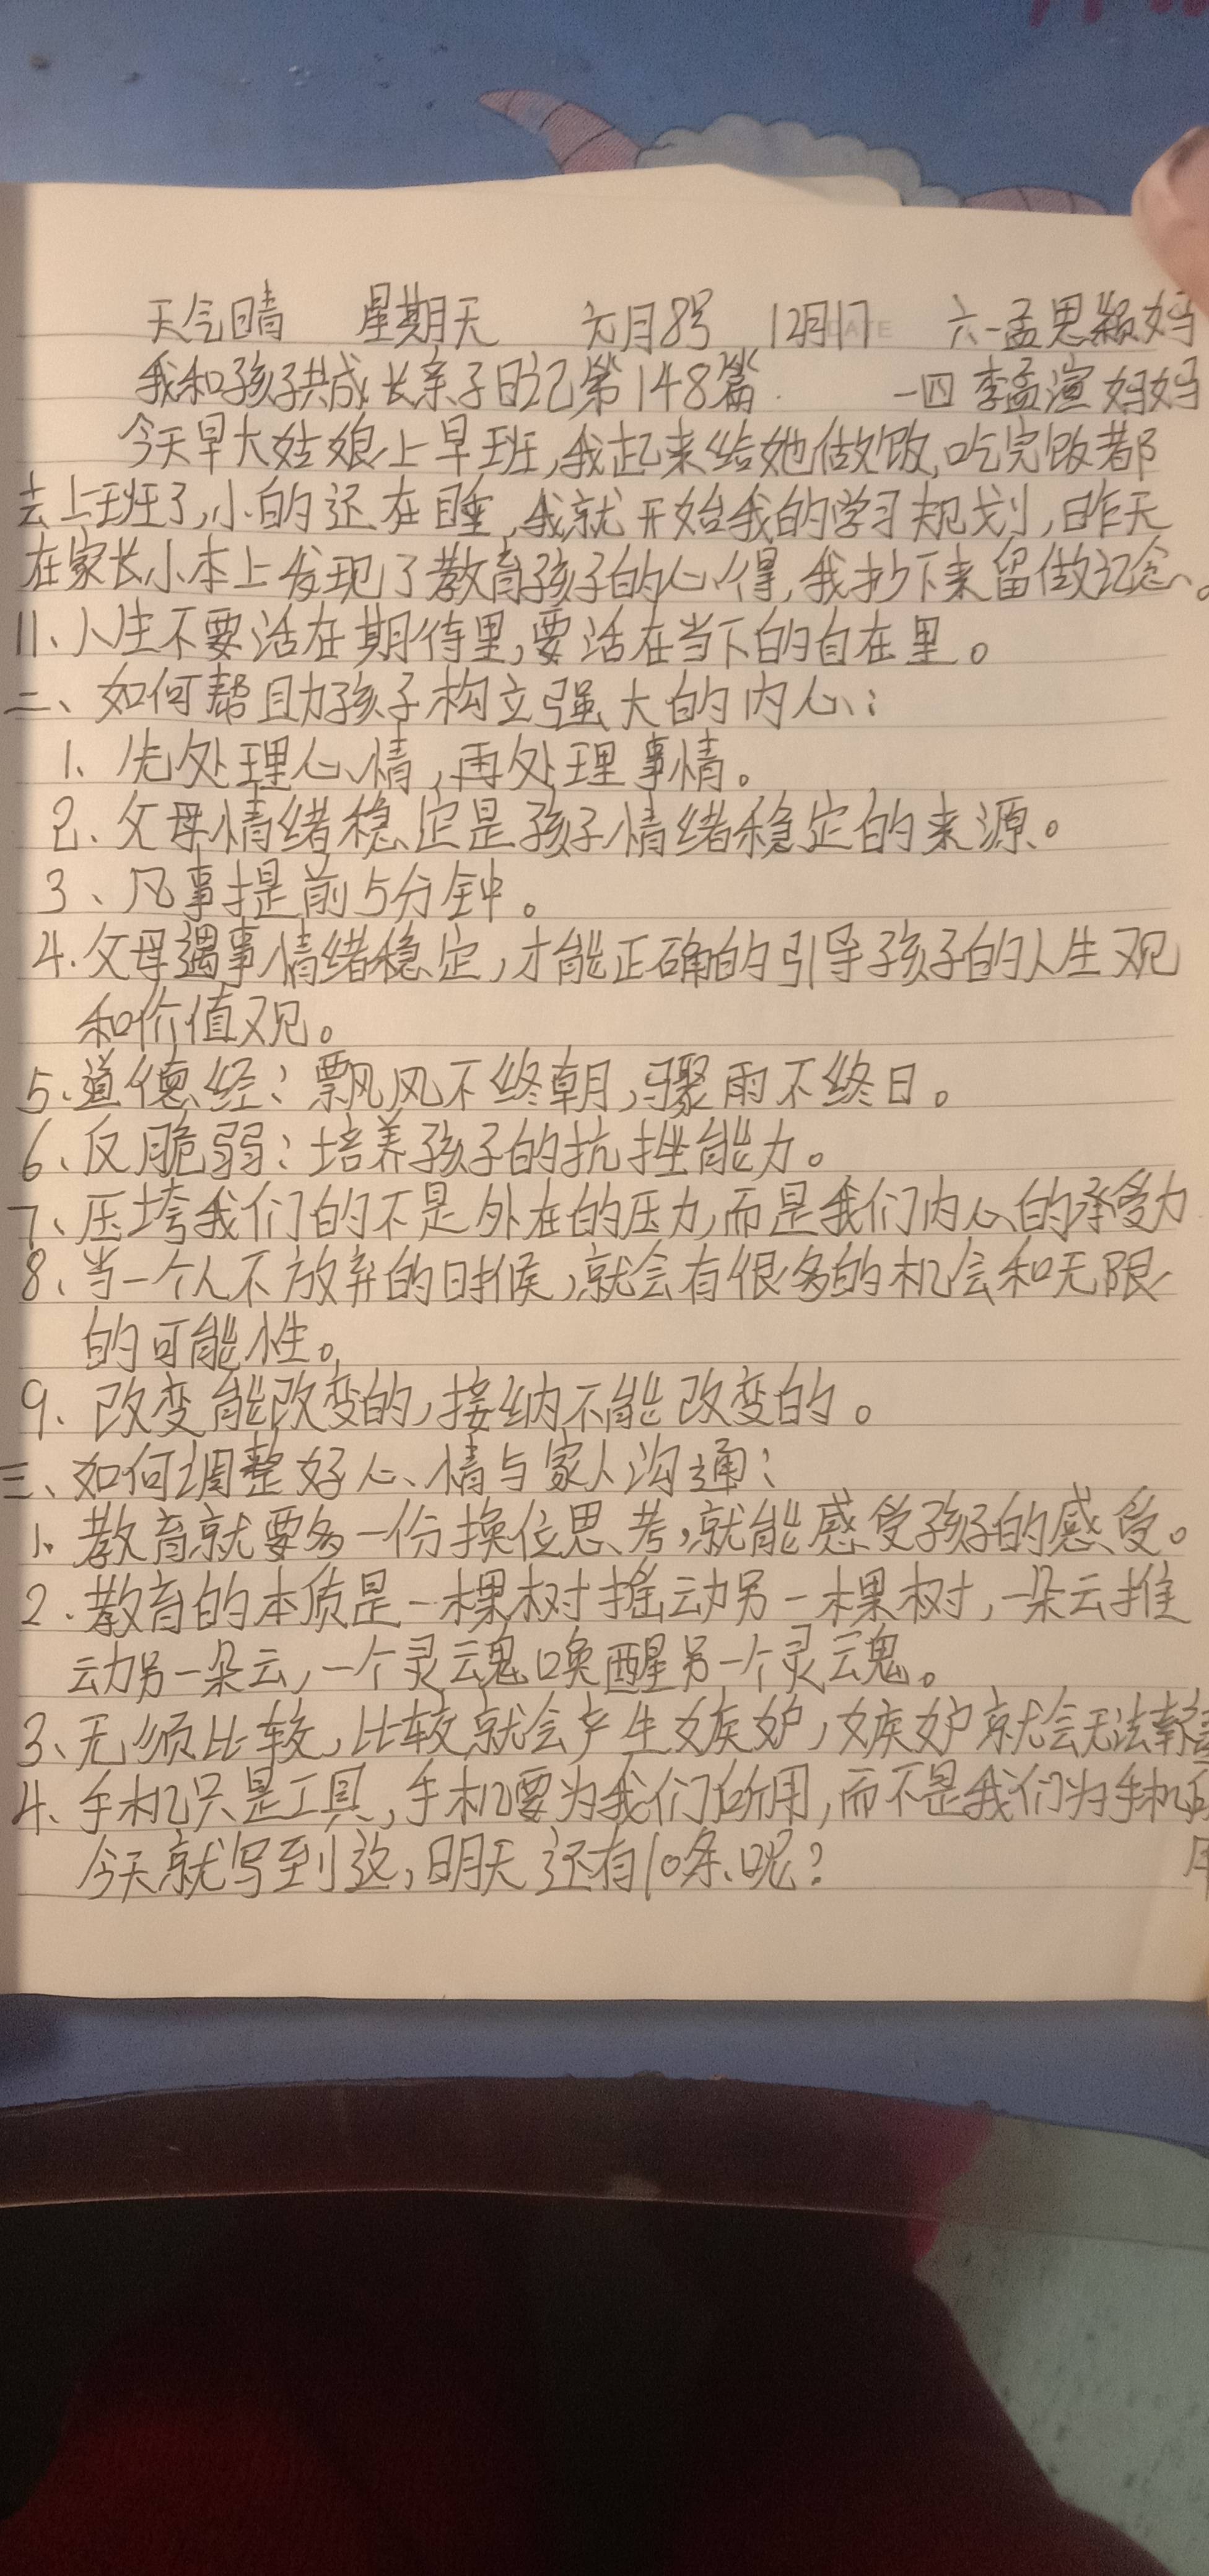 天气晴 星期天 元月8号 12月17 六一孟思颖妈
我和孩子共成长亲子日记第148篇. 一四李孟演妈妈
今天早大姑娘上早班,我起来给她做饭,吃完饭都
去上班了,小的还在睡,我就开始我的学习规划,昨天
在家长小本上发现了教育孩子的心得,我抄下来留做记念。
11、人生不要活在期待里,要活在当下的自在里。
二、如何帮助孩子构立强大的内心:
1、先处理心情,再处理事情。
2、父母情绪稳定是孩子情绪稳定的来源。
3、凡事提前5分钟。
4.父母遇事情绪稳定,才能正确的引导孩子的人生观
和价值观。
5.道德经:飘风不终朝,骤雨不终日。
6、反脆弱:培养孩子的抗挫能力。
7、压垮我们的不是外在的压力,而是我们内心的承受力
8、当一个人不放弃的时候,就会有很多的机会和无限
的可能性。
9、改变能改变的,接纳不能改变的。
三、如何调整好心情与家人沟通:
1、教育就要多一份换位思考,就能感受孩子的感受。
2.教育的本质是一棵树摇动另一棵树,一朵云推
动另一朵云,一个灵魂唤醒另一个灵魂。
3、无须比较,比较就会产生嫉妒,嫉妒就会无法
4、手机只是工具,手机要为我们所用,而不是我们为手机
今天就写到这,明天还有10条呢?